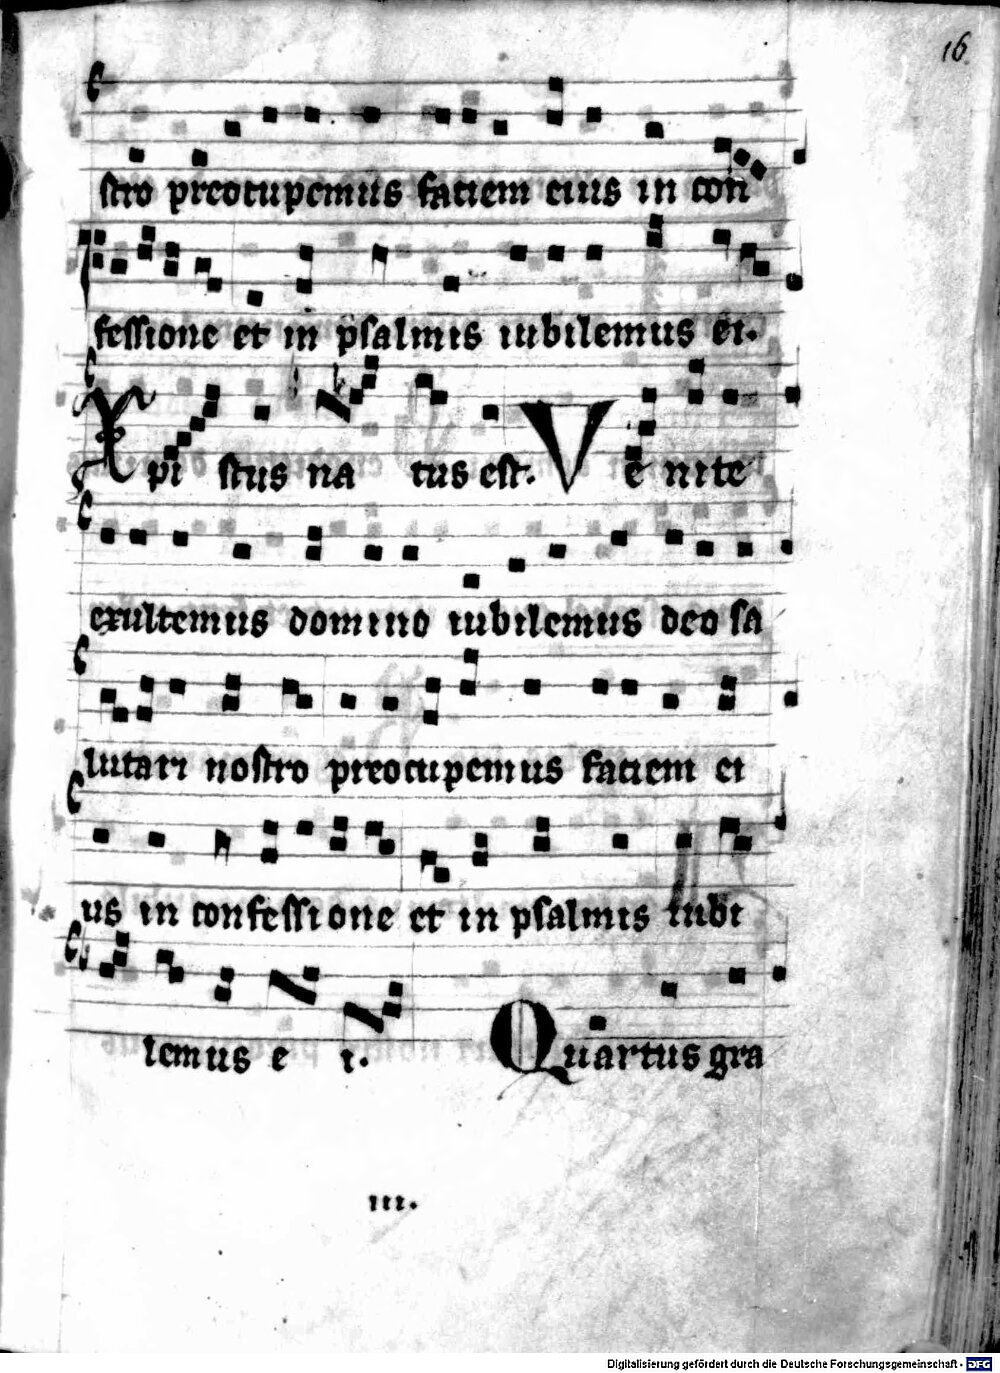 16
stro preocupemus faciem eius in con
fessione et in psalmis iubilemus ei.
Xpi stus na tus est. V e nite
exultemus domino iubilemus deo sa
lutari nostro preocupemus faciem ei
us in confessione et in psalmis iubi
lemus e i. Quartus gra
iii.
Digitalisierung gefördert durch die Deutsche Forschungsgemeinschaft - DFG